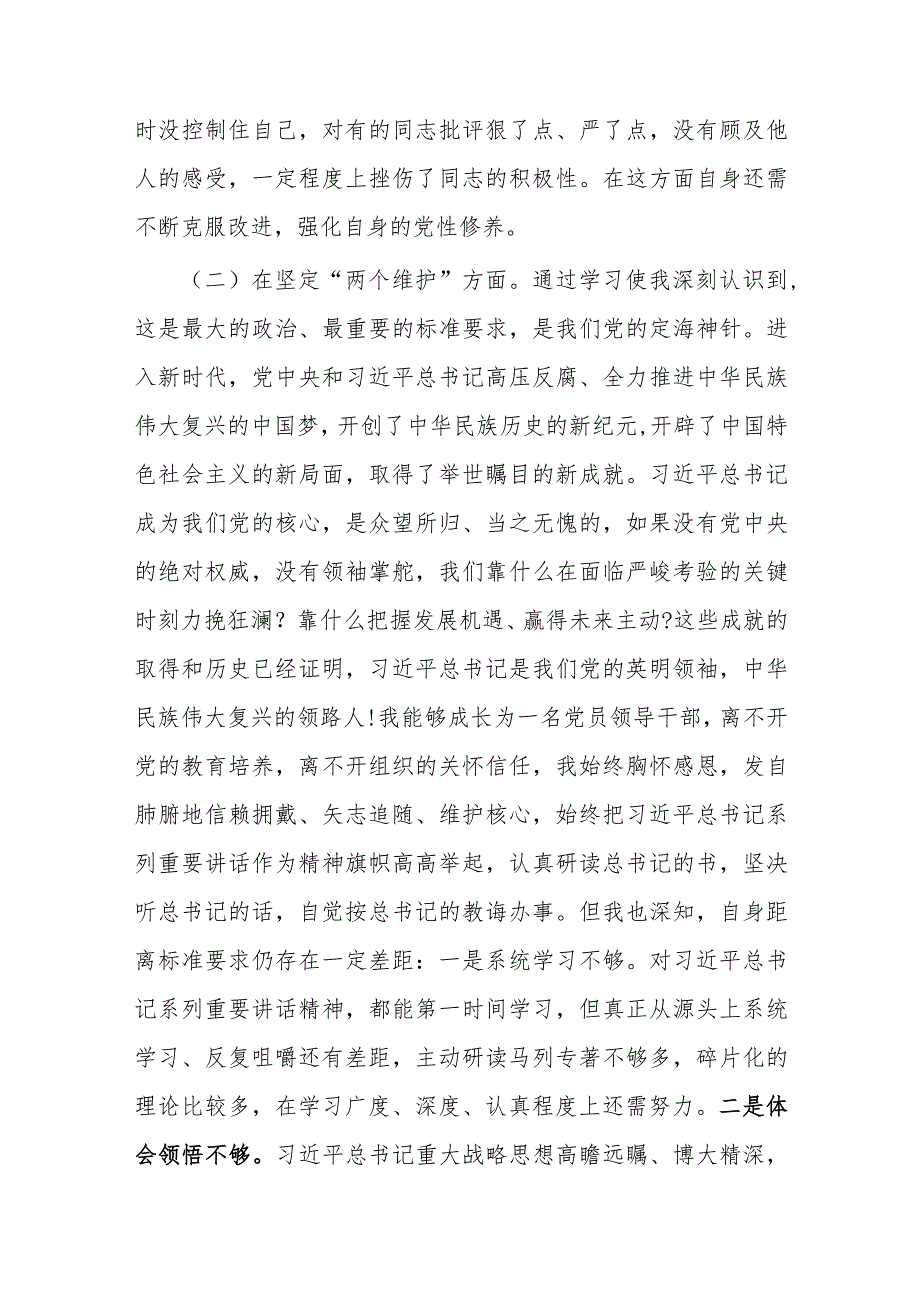 时没控制住自己，对有的同志批评狠了点、严了点，没有顾及他
人的感受，一定程度上挫伤了同志的积极性。在这方面自身还需
不断克服改进，强化自身的党性修养。
（二）在坚定“两个维护”方面。通过学习使我深刻认识到，
这是最大的政治、最重要的标准要求，是我们党的定海神针。进
入新时代，党中央和习近平总书记高压反腐、全力推进中华民族
伟大复兴的中国梦，开创了中华民族历史的新纪元,开辟了中国特
色社会主义的新局面，取得了举世瞩目的新成就。习近平总书记
成为我们党的核心，是众望所归、当之无愧的，如果没有党中央
的绝对权威，没有领袖掌舵，我们靠什么在面临严峻考验的关键
时刻力挽狂澜？靠什么把握发展机遇、赢得未来主动?这些成就的
取得和历史已经证明，习近平总书记是我们党的英明领袖，中华
民族伟大复兴的领路人!我能够成长为一名党员领导干部，离不开
党的教育培养，离不开组织的关怀信任，我始终胸怀感恩，发自
肺腑地信赖拥戴、矢志追随、维护核心，始终把习近平总书记系
列重要讲话作为精神旗帜高高举起，认真研读总书记的书，坚决
听总书记的话，自觉按总书记的教诲办事。但我也深知，自身距
离标准要求仍存在一定差距：一是系统学习不够。对习近平总书
记系列重要讲话精神，都能第一时间学习，但真正从源头上系统
学习、反复咀嚼还有差距，主动研读马列专著不够多，碎片化的
理论比较多，在学习广度、深度、认真程度上还需努力。二是体
会领悟不够。习近平总书记重大战略思想高瞻远瞩、博大精深，